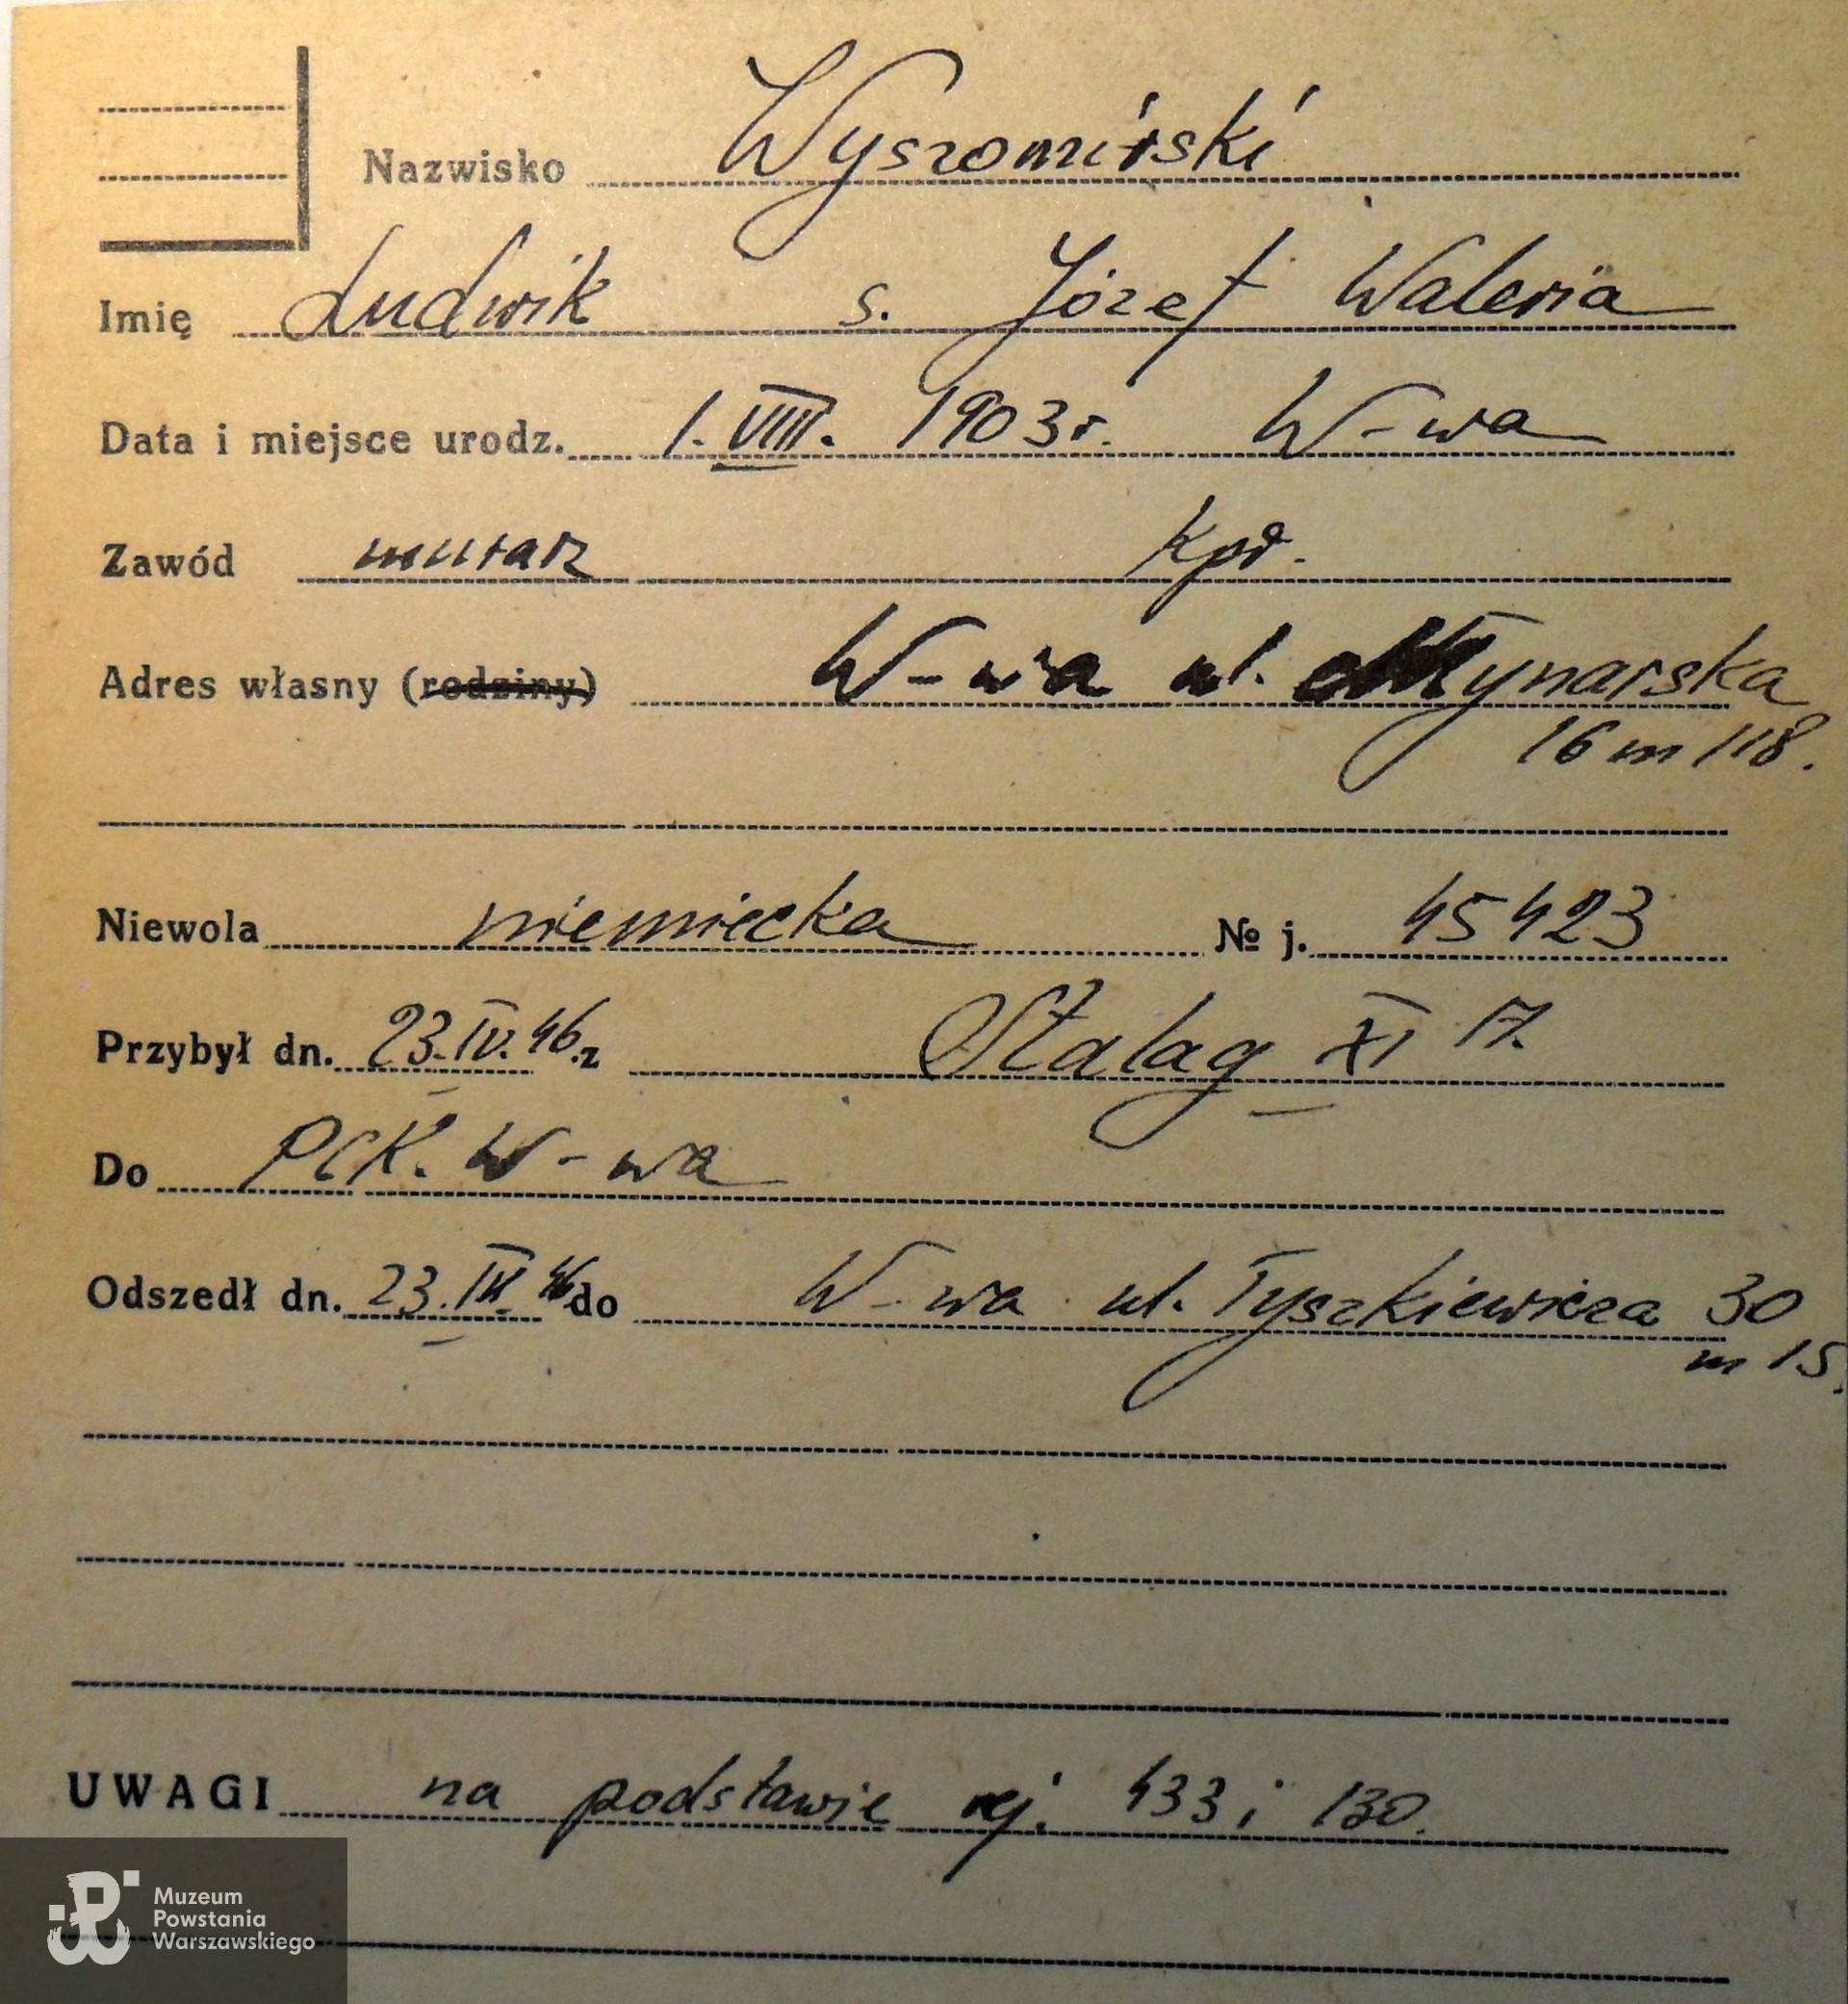 Nazwisko Wyszomirski
Imię Ludwik s. Józef Waleria
Data i miejsce urodz. 1. VIII. 1903 r. W-wa
Zawód murarz kpr.
Adres własny (rodziny) W-wa ul. Młynarska
16 m 118.
Niewola niemiecka № j. 45423
Przybył dn. 23. IV. 46. z Stalag XI
Do PCK. W-wa
Odszedł dn. 23. IV. 46 do W-wa ul. Tyszkiewicza 30
m 15.
UWAGI na podstawie rej. 433 i 130.
Muzeum
Powstania
Warszawskiego